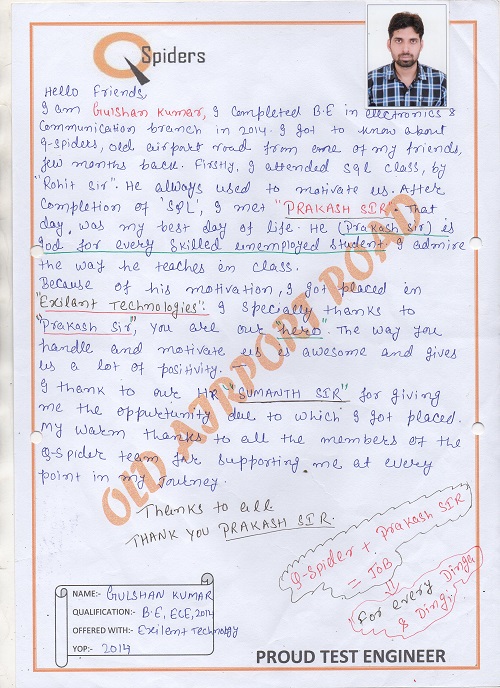 Q Spiders
Hello Friends,
I am Gulshan Kumar, I completed B.E in electronics &
Communication branch in 2014. I got to know about
Q-spiders, old airport road from one of my friends,
few months back. Firstly, I attended SQL class, by
"Rohit Sir". He always used to motivate us. After
completion of 'SQL', I met "PRAKASH SIR" That
day, was my best day of life. He (Prakash Sir) is
god for every skilled unemployed student. I admire
the way he teaches in class.
Because of his motivation, I got placed in
"Exilant Technologies". I specially thanks to
"Prakash Sir", you are our "hero". The way you
handle and motivate us is awesome and gives
us a lot of positivity.
I thank to our HR "SUMANTH SIR" for giving
me the oppurtunity due to which I got placed.
My warm thanks to all the members of the
Q-Spider team for supporting me at every
point in my Journey.
Thanks to all
THANK YOU PRAKASH SIR.
Q-Spider + Prakash SIR
= JOB
For every Dinga
& Dingi
OLD AIRPORT ROAD
NAME:- GULSHAN KUMAR
QUALIFICATION:- B.E, ECE, 2014
OFFERED WITH:- Exilent Technology
YOP:- 2014
PROUD TEST ENGINEER